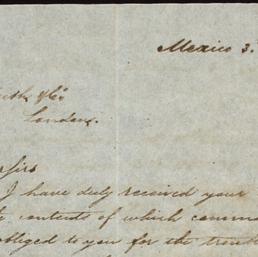 Mexico 3.
& Co
London.
I have duly received your
contents of which
obliged to you for the